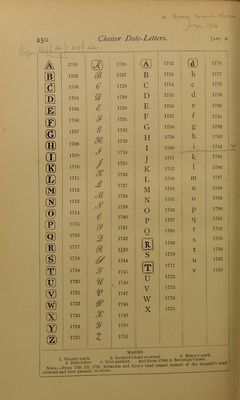 450 Chester Date-Letters. [APP. B.
A 1701 A 1726 A 1752 a 1776
B 1702 B 1727 B 1753 b 1777
C 1703 C 1728 C 1754 c 1778
D 1704 D 1729 D 1755 d 1779
E 1705 E 1730 E 1756 e 1780
F 1706 F 1731 F 1757 f 1781
G 1707 G 1732 G 1758 g 1782
H 1708 H 1733 H 1759 h 1783
I 1709 I 1734 I 1760 i 1784
K 1710 J 1735 J 1761 k 1785
L 1711 K 1736 K 1762 l 1786
M 1712 L 1737 L 1763 m 1787
N 1713 M 1738 M 1764 n 1788
O 1714 N 1739 N 1765 o 1789
P 1715 O 1740 O 1766 p 1790
Q 1716 P 1741 P 1767 q 1791
R 1717 Q 1742 Q 1768 r 1792
S 1718 R 1743 R 1769 s 1793
T 1719 S 1744 S 1770 t 1794
U 1720 T 1745 T 1771 u 1795
V 1721 U 1746 U 1772 v 1796
W 1722 V 1747 V 1773
X 1723 W 1748 W 1774
Y 1724 X 1749 X 1775
Z 1725 Y 1750
Z 1751
MARKS.
1. Chester mark. 3. Leopard's head crowned. 5. Maker's mark.
2. Date-letter. 4. Lion passant. And (from 1784) 6. Sovereign's head.
NOTE.—From 1701 till 1720, Britannia and Lion's head erased instead of the Leopard's head
crowned and Lion passant, as above.